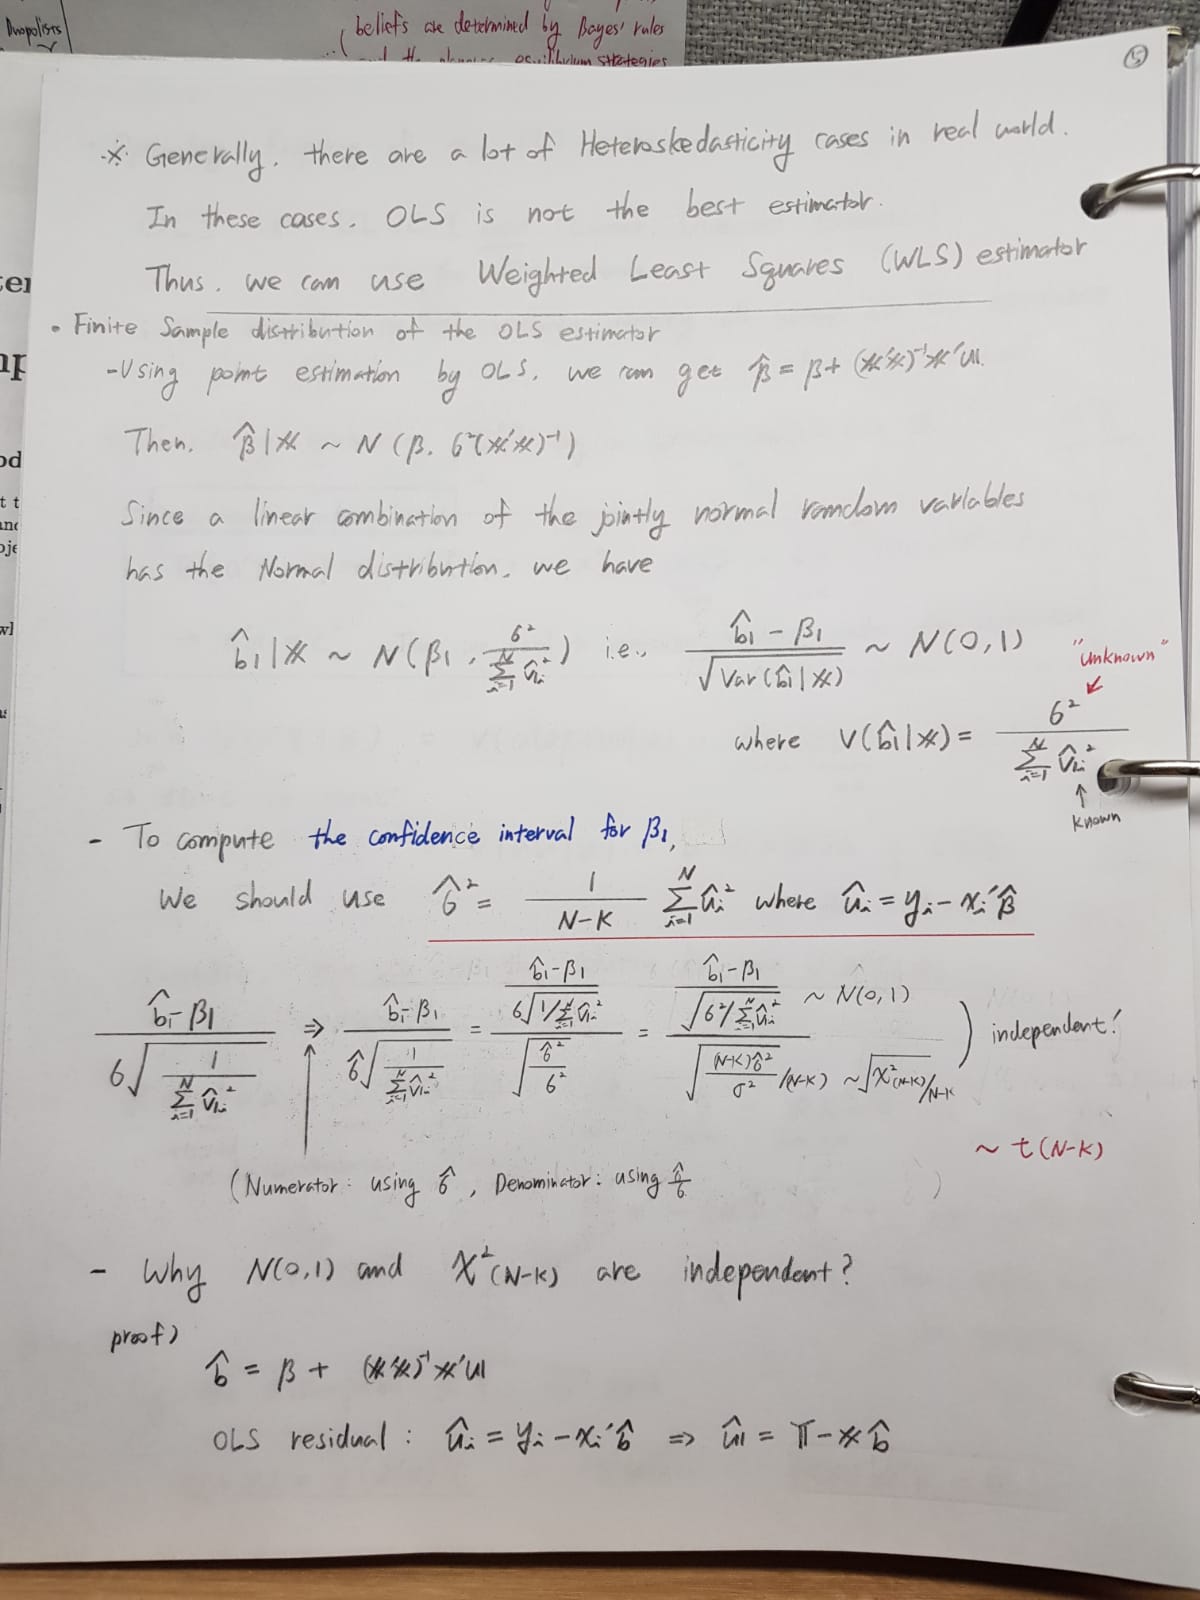 Duopolists
beliefs are determined by Bayes' rules
equilibrium strategies
⑤
※ Generally, there are a lot of Heteroskedasticity cases in real world.
In these cases, OLS is not the best estimator.
Thus, we can use Weighted Least Squares (WLS) estimator
• Finite Sample distribution of the OLS estimator
- Using point estimation by OLS, we can get β̂ = β + (X'X)⁻¹X'u.
Then, β̂|X ~ N(β, σ²(X'X)⁻¹)
Since a linear combination of the jointly normal random variables
has the Normal distribution, we have
b̂₁|X ~ N(β₁, σ² / Σᵢ₌₁ᴺ v̂₁ᵢ²) i.e., (b̂₁ - β₁) / √Var(b̂₁|X) ~ N(0,1)
"unknown"
where V(b̂₁|X) = σ² / Σᵢ₌₁ᴺ v̂₁ᵢ²
↑
known
- To compute the confidence interval for β₁,
We should use σ̂² = 1/(N-K) Σᵢ₌₁ᴺ ûᵢ² where ûᵢ = yᵢ - xᵢ'β̂
(b̂₁-β₁) / (σ√(1/Σᵢ₌₁ᴺ v̂₁ᵢ²)) ⇒ (b̂₁-β₁) / (σ̂√(1/Σᵢ₌₁ᴺ v̂₁ᵢ²)) = ((b̂₁-β₁) / (σ√(1/Σᵢ₌₁ᴺ v̂₁ᵢ²))) / √(σ̂²/σ²) = ((b̂₁-β₁) / √(σ²/Σᵢ₌₁ᴺ v̂₁ᵢ²) ~ N(0,1)) / (√((N-K)σ̂²/σ² /(N-K)) ~ √(χ²(N-K)/N-K)) ) independent!
~ t(N-K)
(Numerator: using σ̂, Denominator: using σ̂/σ )
- Why N(0,1) and χ²(N-K) are independent?
proof)
b̂ = β + (X'X)⁻¹X'u
OLS residual : ûᵢ = yᵢ - xᵢ'b̂ ⇒ û = Y - Xb̂